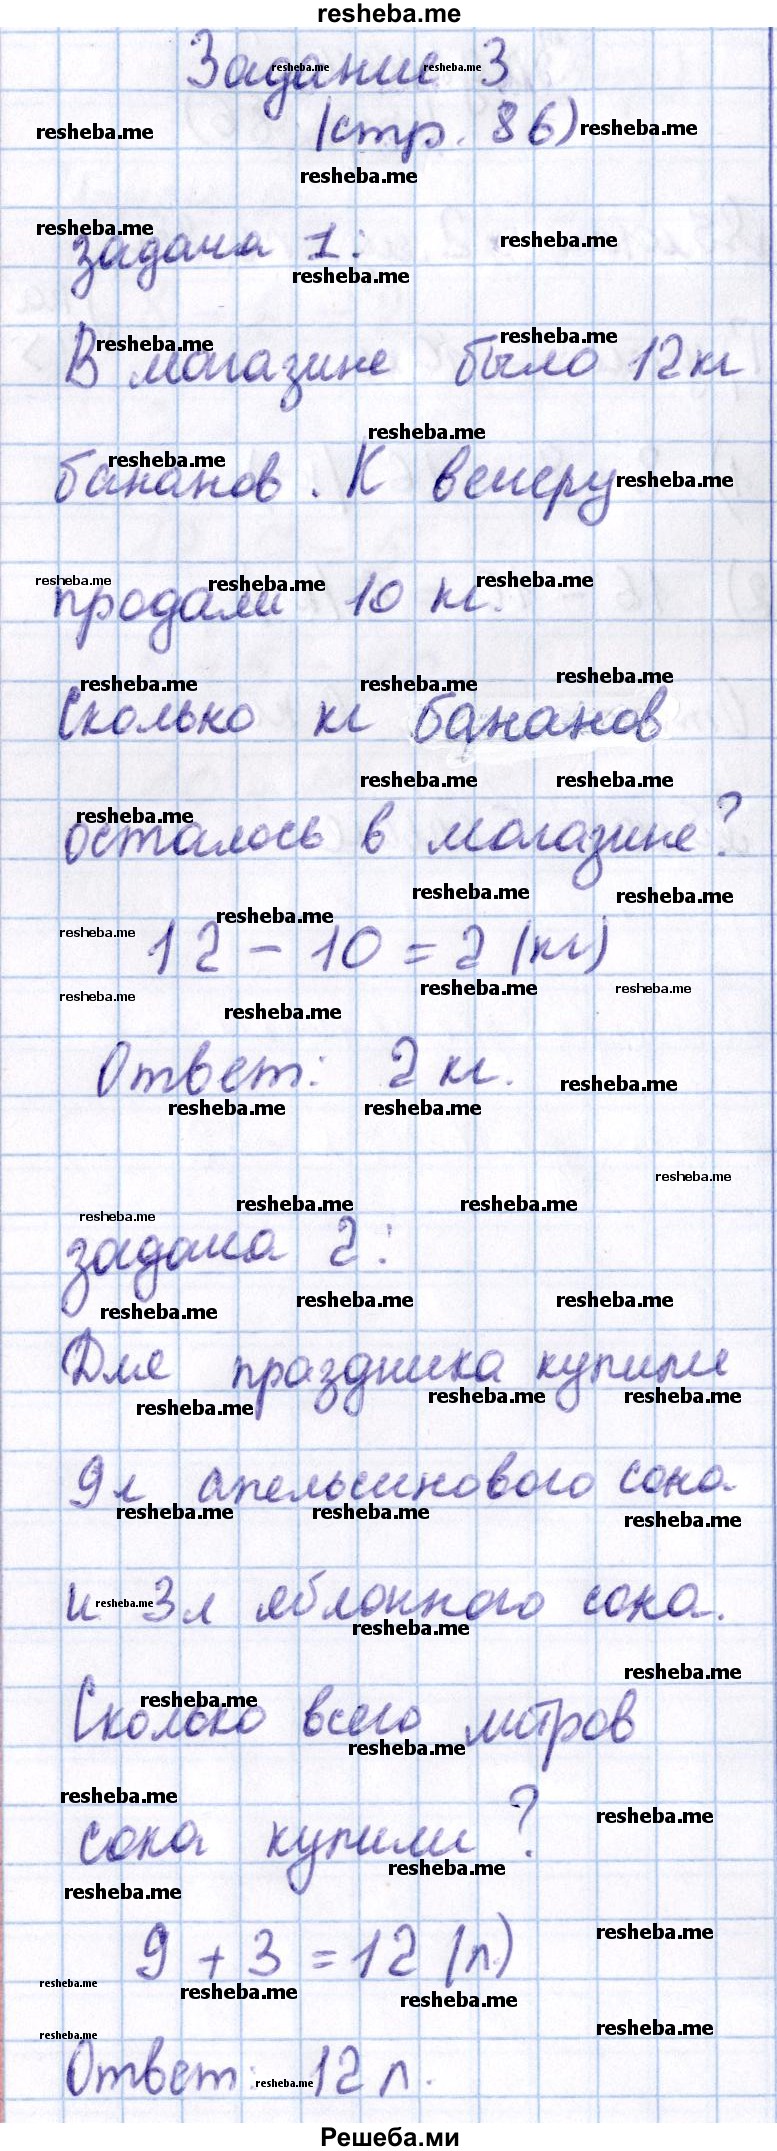 resheba.me
Задание 3
(стр. 86)
задача 1:
В магазине было 12 кг
бананов. К вечеру
продали 10 кг.
Сколько кг бананов
осталось в магазине?
12 - 10 = 2 (кг)
Ответ: 2 кг.
задача 2:
Для праздника купили
9 л апельсинового сока
и 3 л яблочного сока.
Сколько всего литров
сока купили?
9 + 3 = 12 (л)
Ответ: 12 л.
Решеба.ми